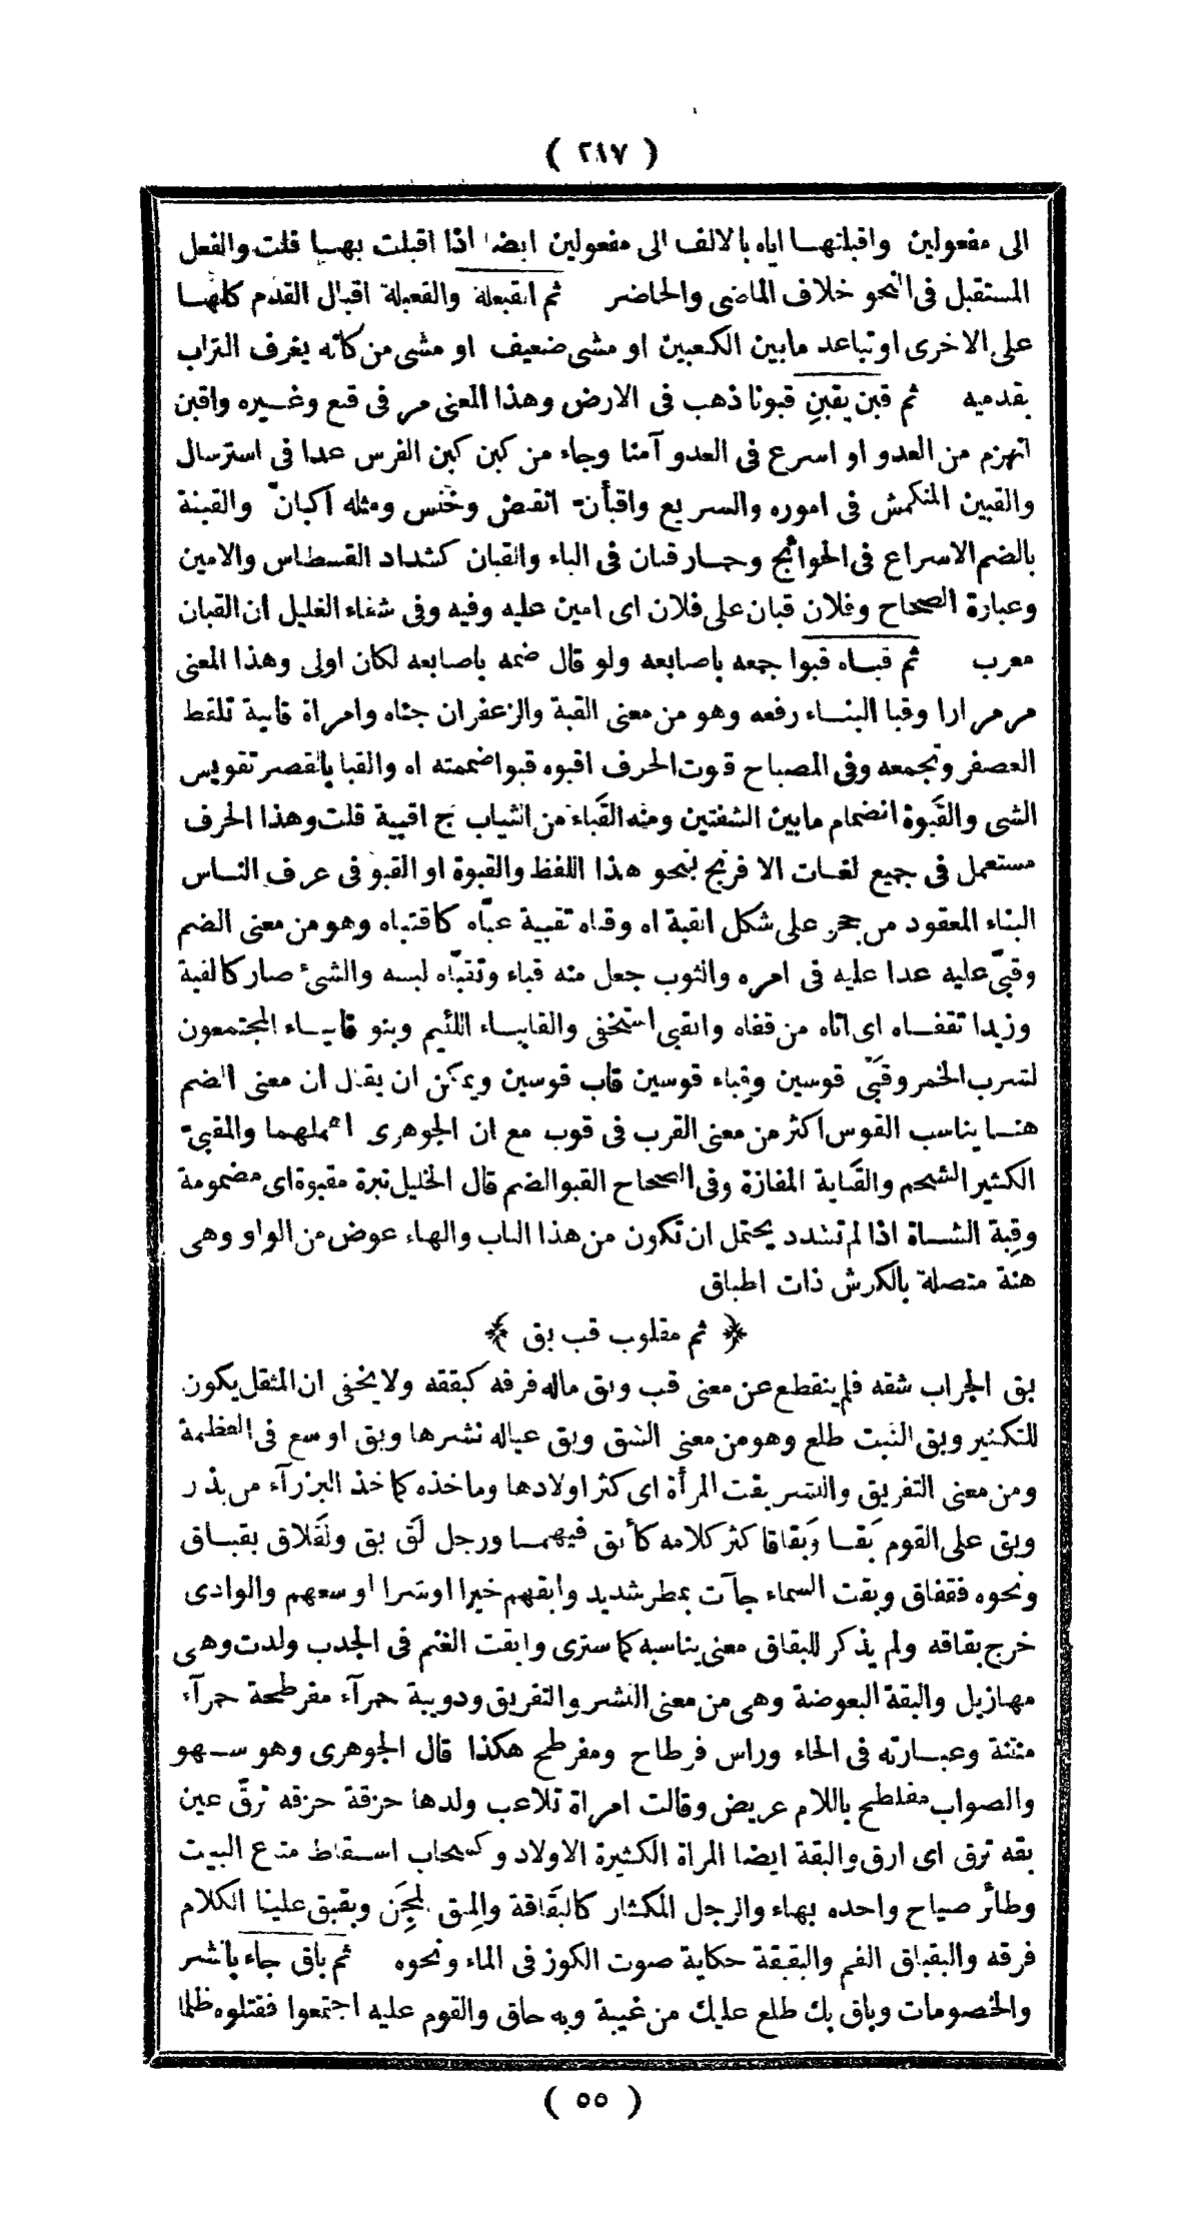 ( ٢١٧ )
الى مفعولين واقبلتهـا اياه بالالف الى مفعولين ايضا اذا اقبلت بهـا قلت والفعل
المستقبل فى النحو خلاف الماضى والحاضر ثم القبعلة والقعبلة اقبال القدم كلهـا
على الاخرى او تباعد مابين الكعبين او مشى ضعيف او مشى من كأنه يغرف التراب
بقدميه ثم قبن يقبن قبونا ذهب فى الارض وهذا المعنى مر فى قبع وغـيره واقبن
انهزم من العدو او اسرع فى العدو آمنا وجاء من كبن كبن الفرس عدا فى استرسال
والقبين المنكمش فى اموره والسريع واقبأنّ انقبض وخنس ومثله اكبانّ والقبنة
بالضم الاسراع فى الحوائج وحمـار قبان فى الباء والقبان كشداد القسطاس والامين
وعبارة الصحاح وفلان قبان على فلان اى امين عليه وفيه وفى شفاء الغليل ان القبان
معرب ثم قبـاه قبوا جمعه باصابعه ولو قال ضمه باصابعه لكان اولى وهذا المعنى
مر مرارا وقبا البنـاء رفعه وهو من معنى القبة والزعفران جناه وامراة قابية تلقط
العصفر وتجمعه وفى المصباح قبوت الحرف اقبوه قبوا ضممته اه والقبا بالقصر تقويس
الشى والقَبوة انضمام مابين الشفتين ومنه القَباء من الثياب ج اقبية قلت وهذا الحرف
مستعمل فى جميع لغـات الافرنج بنحو هذا اللفظ والقبوة او القبو فى عرف النـاس
البناء المعقود من حجر على شكل القبة اه وقباه تقبية عبّاه كاقتباه وهو من معنى الضم
وقبّى عليه عدا عليه فى امره والثوب جعل منه قباء وتقبّاه لبسه والشئ صار كالقبة
وزيدا تقفـاه اى اتاه من قفاه وانقبى استخفى والقابيـاء اللئيم وبنو قابيـاء المجتمعون
لشرب الخمر وقَبّى قوسين وقِباء قوسين قاب قوسين ويمكن ان يقال ان معنى الضم
هنـا يناسب القوس اكثر من معنى القرب فى قوب مع ان الجوهرى اهملهما والمقبىّ
الكثير الشحم والقَباية المفازة وفى الصحاح القبو الضم قال الخليل نبرة مقبوة اى مضمومة
وقِبة الشـاة اذا لم تشدد يحتمل ان تكون من هذا الباب والهاء عوض من الواو وهى
هنة متصلة بالكرش ذات اطباق
﴿ ثم مقلوب قب بق ﴾
بق الجراب شقه فلم ينقطع عن معنى قب وبق ماله فرقه كبققه ولا يخفى ان المثقل يكون
للتكثير وبق النبت طلع وهو من معنى الشق وبق عياله نشرها وبق اوسع فى العظمة
ومن معنى التفريق والنشر بقت المرأة اى كثر اولادها وماخذه كماخذ البزرآء من بذر
وبق على القوم بَقـا وبَقاقا كثر كلامه كأبق فيهمـا ورجل لَق بق ولَقلاق بقبـاق
ونحوه فقفاق وبقت السماء جآت بمطر شديد وابقهم خيرا او شرا اوسعهم والوادى
خرج بقاقه ولم يذكر للبقاق معنى يناسبه كما سترى وابقت الغنم فى الجدب ولدت وهى
مهازيل والبقة البعوضة وهى من معنى النشر والتفريق ودويبة حمرآء مفرطحة حمرآء
منتنة وعبـارته فى الحاء وراس فرطاح ومفرطح هكذا قال الجوهرى وهو سـهو
والصواب مفلطح باللام عريض وقالت امراة تلاعب ولدها حزقة حزقه ترقّ عين
بقه ترق اى ارق والبقة ايضا المراة الكثيرة الاولاد وكسحاب اسـقاط متاع البيت
وطائر صياح واحده بهاء والرجل المكثار كالبَقاقة والمِبق كمِجَن وبقبق علينا الكلام
فرقه والبقباق الفم والبقبقة حكاية صوت الكوز فى الماء ونحوه ثم باق جاء بالشر
والخصومات وباق بك طلع عليك من غيبة وبه حاق والقوم عليه اجتمعوا فقتلوه ظلما
( ٥٥ )